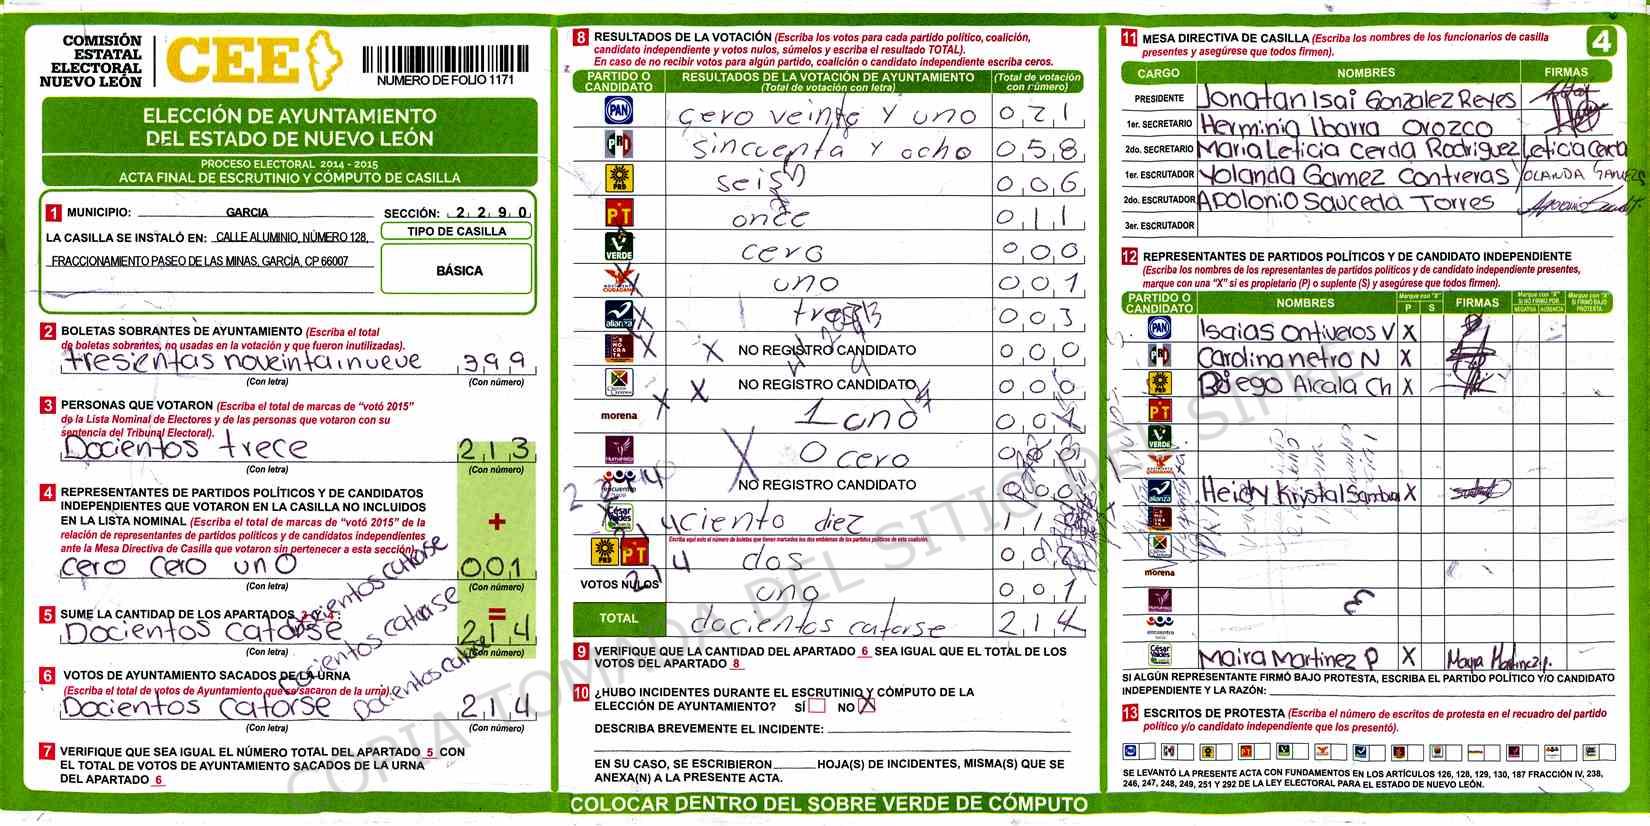 COMISIÓN
ESTATAL
ELECTORAL
NUEVO LEÓN
CEE
NUMERO DE FOLIO 1171
ELECCIÓN DE AYUNTAMIENTO
DEL ESTADO DE NUEVO LEÓN
PROCESO ELECTORAL 2014 - 2015
ACTA FINAL DE ESCRUTINIO Y CÓMPUTO DE CASILLA
1 MUNICIPIO: GARCIA SECCIÓN: 2 2 9 0
LA CASILLA SE INSTALÓ EN: CALLE ALUMINIO, NÚMERO 128,
FRACCIONAMIENTO PASEO DE LAS MINAS, GARCÍA, CP 66007
TIPO DE CASILLA
BÁSICA
2 BOLETAS SOBRANTES DE AYUNTAMIENTO (Escriba el total
de boletas sobrantes, no usadas en la votación y que fueron inutilizadas).
tresientas noveinta nueve 3 9 9
(Con letra) (Con número)
3 PERSONAS QUE VOTARON (Escriba el total de marcas de "votó 2015"
de la Lista Nominal de Electores y de las personas que votaron con su
sentencia del Tribunal Electoral).
Docientos trece 2 1 3
(Con letra) (Con número)
4 REPRESENTANTES DE PARTIDOS POLÍTICOS Y DE CANDIDATOS
INDEPENDIENTES QUE VOTARON EN LA CASILLA NO INCLUIDOS
EN LA LISTA NOMINAL (Escriba el total de marcas de "votó 2015" de la
relación de representantes de partidos políticos y de candidatos independientes
ante la Mesa Directiva de Casilla que votaron sin pertenecer a esta sección).
+
cero cero uno 0 0 1
(Con letra) (Con número)
5 SUME LA CANTIDAD DE LOS APARTADOS
=
Docientos catorse 2 1 4
docientos catorse
(Con letra) (Con número)
6 VOTOS DE AYUNTAMIENTO SACADOS DE LA URNA
(Escriba el total de votos de Ayuntamiento que se sacaron de la urna).
Docientos catorse 2 1 4
docientos catorse
Docientos catorse
(Con letra) (Con número)
7 VERIFIQUE QUE SEA IGUAL EL NÚMERO TOTAL DEL APARTADO 5 CON
EL TOTAL DE VOTOS DE AYUNTAMIENTO SACADOS DE LA URNA
DEL APARTADO 6
8 RESULTADOS DE LA VOTACIÓN (Escriba los votos para cada partido político, coalición,
candidato independiente y votos nulos, súmelos y escriba el resultado TOTAL).
En caso de no recibir votos para algún partido, coalición o candidato independiente escriba ceros.
PARTIDO O CANDIDATO
RESULTADOS DE LA VOTACIÓN DE AYUNTAMIENTO
(Total de votación con letra)
(Total de votación con número)
PAN cero veinte y uno 0 2 1
PRI sincuenta y ocho 0 5 8
PRD seis 0 0 6
PT once 0 1 1
VERDE cero 0 0 0
MOVIMIENTO CIUDADANO uno 0 0 1
alianza tres 0 0 3
NO REGISTRO CANDIDATO 0 0 0
NO REGISTRO CANDIDATO 0 0 0
morena 1 uno 0 0 1
Humanista 0 cero 0 0
encuentro social NO REGISTRO CANDIDATO 0 0 0
César Valdés ciento diez 1 1
Escriba aquí solo el número de boletas que tienen marcados los dos emblemas de los partidos políticos de esta coalición.
PRD PT dos 0 0 2
214
VOTOS NULOS uno 0 0 1
TOTAL docientos catorse 2 1 4
9 VERIFIQUE QUE LA CANTIDAD DEL APARTADO 6 SEA IGUAL QUE EL TOTAL DE LOS
VOTOS DEL APARTADO 8
10 ¿HUBO INCIDENTES DURANTE EL ESCRUTINIO Y CÓMPUTO DE LA
ELECCIÓN DE AYUNTAMIENTO? SÍ NO X
DESCRIBA BREVEMENTE EL INCIDENTE:
EN SU CASO, SE ESCRIBIERON HOJA(S) DE INCIDENTES, MISMA(S) QUE SE
ANEXA(N) A LA PRESENTE ACTA.
COLOCAR DENTRO DEL SOBRE VERDE DE CÓMPUTO
11 MESA DIRECTIVA DE CASILLA (Escriba los nombres de los funcionarios de casilla
presentes y asegúrese que todos firmen).
4
CARGO NOMBRES FIRMAS
PRESIDENTE Jonatan Isai Gonzalez Reyes
1er. SECRETARIO Herminia Ibarra Orozco
2do. SECRETARIO Maria Leticia Cerda Rodriguez Leticia Cerda
1er. ESCRUTADOR Yolanda Gamez Contreras YOLANDA GAMEZ
2do. ESCRUTADOR Apolonio Sauceda Torres
3er. ESCRUTADOR
12 REPRESENTANTES DE PARTIDOS POLÍTICOS Y DE CANDIDATO INDEPENDIENTE
(Escriba los nombres de los representantes de partidos políticos y de candidato independiente presentes,
marque con una "X" si es propietario (P) o suplente (S) y asegúrese que todos firmen).
PARTIDO O CANDIDATO NOMBRES Marque con "X" P S FIRMAS Marque con "X" SI NO FIRMÓ POR NEGATIVA AUSENCIA Marque con "X" SI FIRMÓ BAJO PROTESTA
PAN Isaias Ontiveros V X
PRI Carolina netro N X
PRD Diego Alcala Ch X
PT
VERDE
alianza Heidy Krystal Sandoval X
morena
encuentro social
César Valdés Maira Martinez P X Mayra Martinez P.
SI ALGÚN REPRESENTANTE FIRMÓ BAJO PROTESTA, ESCRIBA EL PARTIDO POLÍTICO Y/O CANDIDATO
INDEPENDIENTE Y LA RAZÓN:
13 ESCRITOS DE PROTESTA (Escriba el número de escritos de protesta en el recuadro del partido
político y/o candidato independiente que los presentó).
SE LEVANTÓ LA PRESENTE ACTA CON FUNDAMENTOS EN LOS ARTÍCULOS 126, 128, 129, 130, 187 FRACCIÓN IV, 238,
246, 247, 248, 249, 251 Y 292 DE LA LEY ELECTORAL PARA EL ESTADO DE NUEVO LEÓN.
COPIA TOMADA DEL SITIO DEL SIPRE